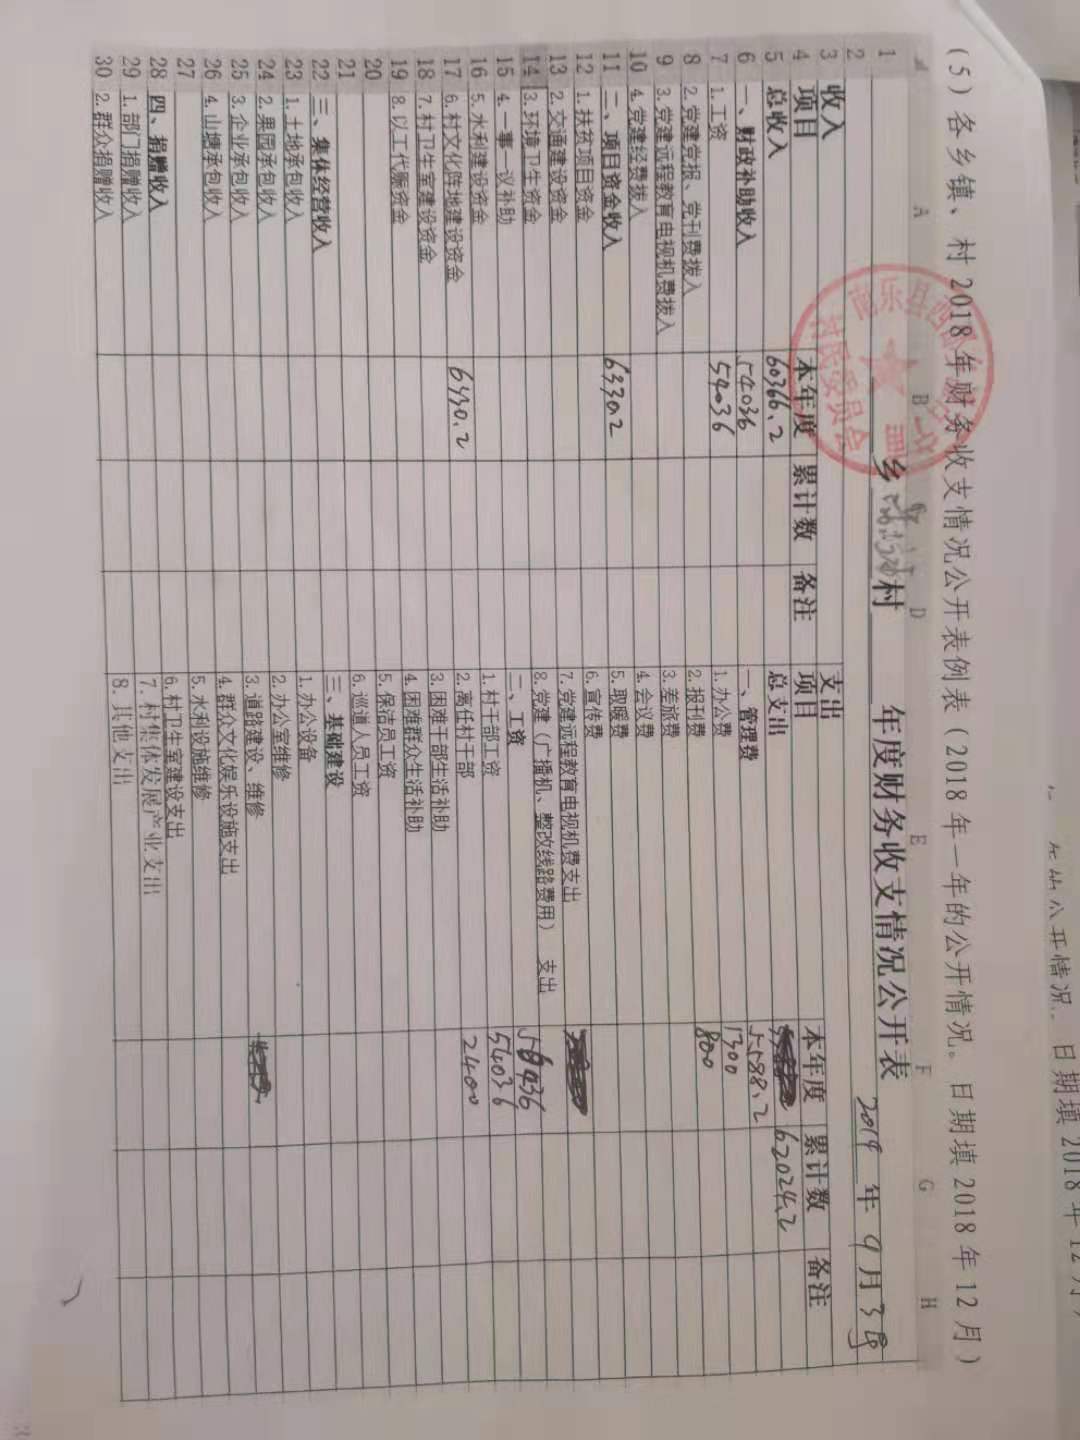 (5) 各乡镇、村 2018 年财务收支情况公开表例表(2018 年一年的公开情况。日期填 2018 年 12 月)
A B D E F G H
1 乡 村 年度财务收支情况公开表
2 2019 年 9 月 3 号
3 收入 支出
4 项目 本年度 累计数 备注 项目 本年度 累计数 备注
5 总收入 60366.2 总支出 62024.2
6 一、财政补助收入 54036 一、管理费 5588.2
7 1.工资 54036 1.办公费 1300
8 2.党建党报、党刊费拨入 2.报刊费 800
9 3.党建远程教育电视机费拨入 3.差旅费
10 4.党建经费拨入 4.会议费
11 二、项目资金收入 6330.2 5.取暖费
12 1.扶贫项目资金 6.宣传费
13 2.交通建设资金 7.党建远程教育电视机费支出
14 3.环境卫生资金 8.党建(广播机、整改线路费用) 支出
15 4.一事一议补助 二、工资
16 5.水利建设资金 1.村干部工资 54036
17 6.村文化阵地建设资金 6330.2 2.离任村干部 2400
18 7.村卫生室建设资金 3.困难干部生活补助
19 8.以工代赈资金 4.困难群众生活补助
20 5.保洁员工资
21 6.巡道人员工资
22 三、集体经营收入 三、基础建设
23 1.土地承包收入 1.办公设备
24 2.果园承包收入 2.办公室维修
25 3.企业承包收入 3.道路建设、维修
26 4.山塘承包收入 4.群众文化娱乐设施支出
27 5.水利设施维修
28 四、捐赠收入 6.村卫生室建设支出
29 1.部门捐赠收入 7.村集体发展产业支出
30 2.群众捐赠收入 8.其他支出
南乐县西
村民委员会
公开情况. 日期填 2018 年 12 月)